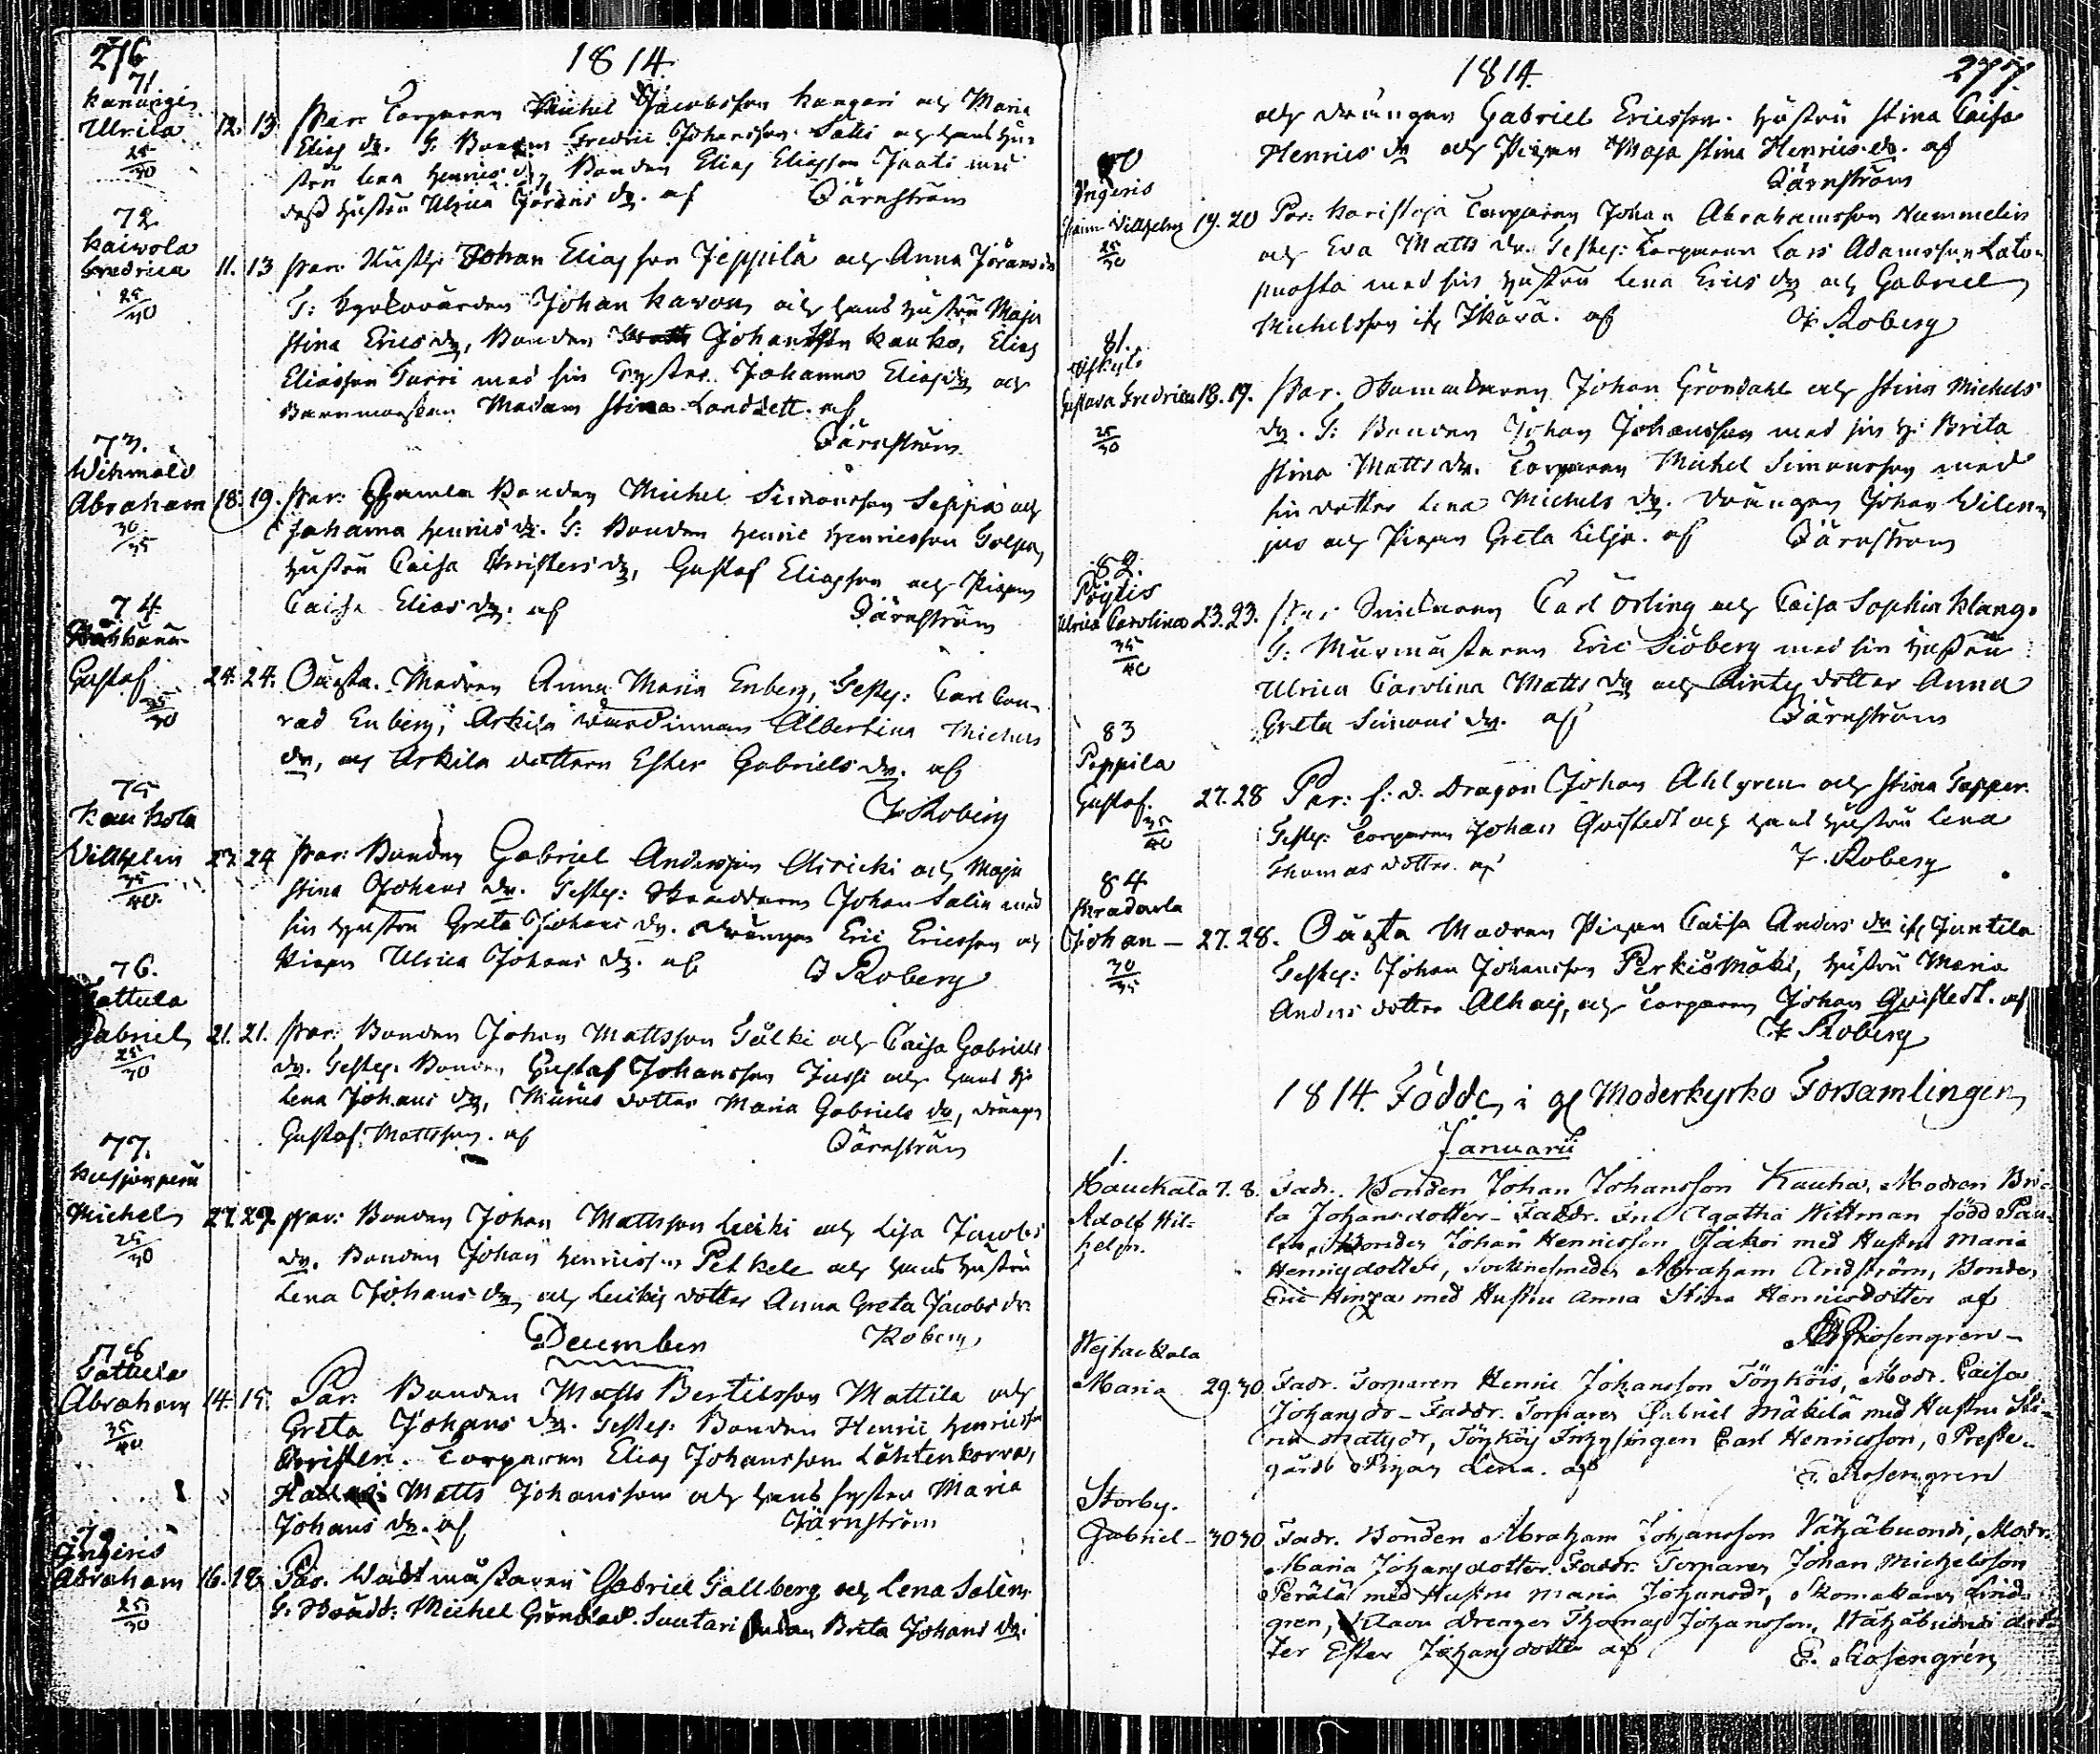 276
1814
71
Ulrica 12. 13 Par: Torparen Michel Jacobsson Kangari och Maria
Elias dr. T: Bonden Fredric Johansson Salli och hans hu-
stru Lena Henrics dr, Bonden Elias Eliasson Jaati med
dess hustru Ulrica Jörans dr. af Färnström
25/30
72
Kaivola
Fredrica 11. 13 Par: Johan Eliasson Jeppilä och Anna Jörans dr
25/30
T: Kyrkovärden Johan och hans hustru Maja
Stina Erics dr, Bonden Johansson Kauko, Elias
Eliasson Turri med sin syster Johanna Elias dr och
Barnmorskan Madam Stina af
Färnström
73.
Abraham 18. 19. Par: Gamla Bonden Michel Simonsson Seppä och
30/35
Johanna Henrics dr. T: Bonden Henric Henricsson
hustru Caisa Christers dr, Gustaf Eliasson och Pigan
Caisa Elias dr. af Färnström
74.
Gustaf 24. 24. Oägta. Modren Anna Maria Enberg, Testes: Carl Con-
25/30
rad Enberg, Arkila Albertina Michels
dr, och Arkila dottern Ester Gabriels dr. af
F. Roberg
75
Kaukola
Villhelm 23. 24 Par: Bonden Gabriel Andersson och Maja
35/40
Stina Johans dr. Testes: Skräddaren Johan Salin med
sin hustru Greta Johans dr. drängen Eric Ericsson och
Pigan Ulrica Johans dr. af F. Roberg
76.
Tattula
Gabriel 21. 21. Par: Bonden Johan Mattsson Tulki och Caisa Gabriels
25/30
dr. Testes: Bonden Gustaf Johansson Jussi och hans h:
Lena Johans dr, dotter Maria Gabriels dr, drängen
Gustaf Mattsson. af Färnström
77.
Michel 27. 29. Par: Bonden Johan Mattsson och Lisa Jacobs
25/30
dr. Bonden Johan Henricsson och hans hustru
Lena Johans dr, och dotter Anna Greta Jacobs dr.
Roberg
December
78
Tattula
Abraham 14. 15. Par: Bonden Matts Bertilsson Mattila och
35/40
Greta Johans dr. Testes: Bonden Henric Henricsson
Torparen Elias Johansson Lähtenkorva,
Matts Johansson och hans syster Maria
Johans dr. af Färnström
79
Ingeris
Abraham 16. 18. Par. Gabriel Tallberg och Lena Salèn.
25/30
T: Michel Suutari Brita Johans dr.
1814.
277
och drängen Gabriel Ericsson. hustru Stina Caisa
Henrics dr och Pigan Maja Stina Henrics dr. af
Färnström
80
Ingeris
Villhelm 19. 20 Par: Karistoja Torparen Johan Abrahamsson Nummelin
25/30
och Eva Matts dr. Testes: Torparen Lars Adamsson Lato-
puosta med sin hustru Lena Erics dr och Gabriel
Michelsson af F. Roberg
81.
Gustava Fredrica 18. 19. Par. Johan Gröndahl och Stina Michels
25/30
dr. T: Bonden Johan Johansson med sin h: Brita
Stina Matts dr. Torparen Michel Simonsson med
sin dotter Lena Michels dr. drängen Johan Vilen-
jus och Pigan Greta Lilja. af Färnström
82.
Pöytis
Ulrica Carolina 23. 23. Par: Carl Örling och Caisa Sophia Klang.
35/40
T: Murmästaren Eric Siöberg med sin hustru
Ulrica Carolina Matts dr och dotter Anna
Greta Simons dr. af Färnström
83
Peppila
Gustaf. 27. 28 Par: f: d. Dragon Johan Ahlgren och Stina Tapper.
35/40
Testes: Torparen Johan Qvistedt och hans hustru Lena
Thomas dotter. af F. Roberg
84
Johan - 27. 28. Oägta Modren Pigan Caisa Anders dr Juntila
30/35
Testes: Johan Johansson Perkiömäki, hustru Maria
Anders dotter Alhaig, och Torparen Johan Qvistedt. af
F. Roberg
1814. Födde, i Moderkyrko Församlingen
Januarii
1.
Hauckala 7. 8. Fadr. Bonden Johan Johansson Kauha, Modren Bri-
Adolf Wil-
helm.
ta Johansdotter - Faddr. Fru Agatha Wittman född Pau-
Bonden Johan Henricsson Jakoi med Hustru Maria
Henrigdotter, Sockensmeden Abraham Andström, Bonden
Eric Hinza med Hustru Anna Stina Henricsdotter af
Rosengren -
Maria 29. 30 Fadr. Torparen Henric Johansson Töyköis, Modr. Caisa
Johans dr - Faddr. Torparen Gabriel Mäkilä med Hustru Sti-
na Mats dr, Töyköis Inhysingen Carl Henricsson, Preste-
gårds Pigan Lena. af E. Rosengren
Storby.
Gabriel - 30 30 Fadr. Bonden Abraham Johansson Vähäbuondi, Modr.
Maria Johansdotter. Faddr. Torparen Johan Michelsson
Perälä med Hustru Maria Johansdr, Skomakaren Lind-
gren, drengen Thomas Johansson, Vähäbuondi dot-
ter Ester Johansdotter af E. Rosengren